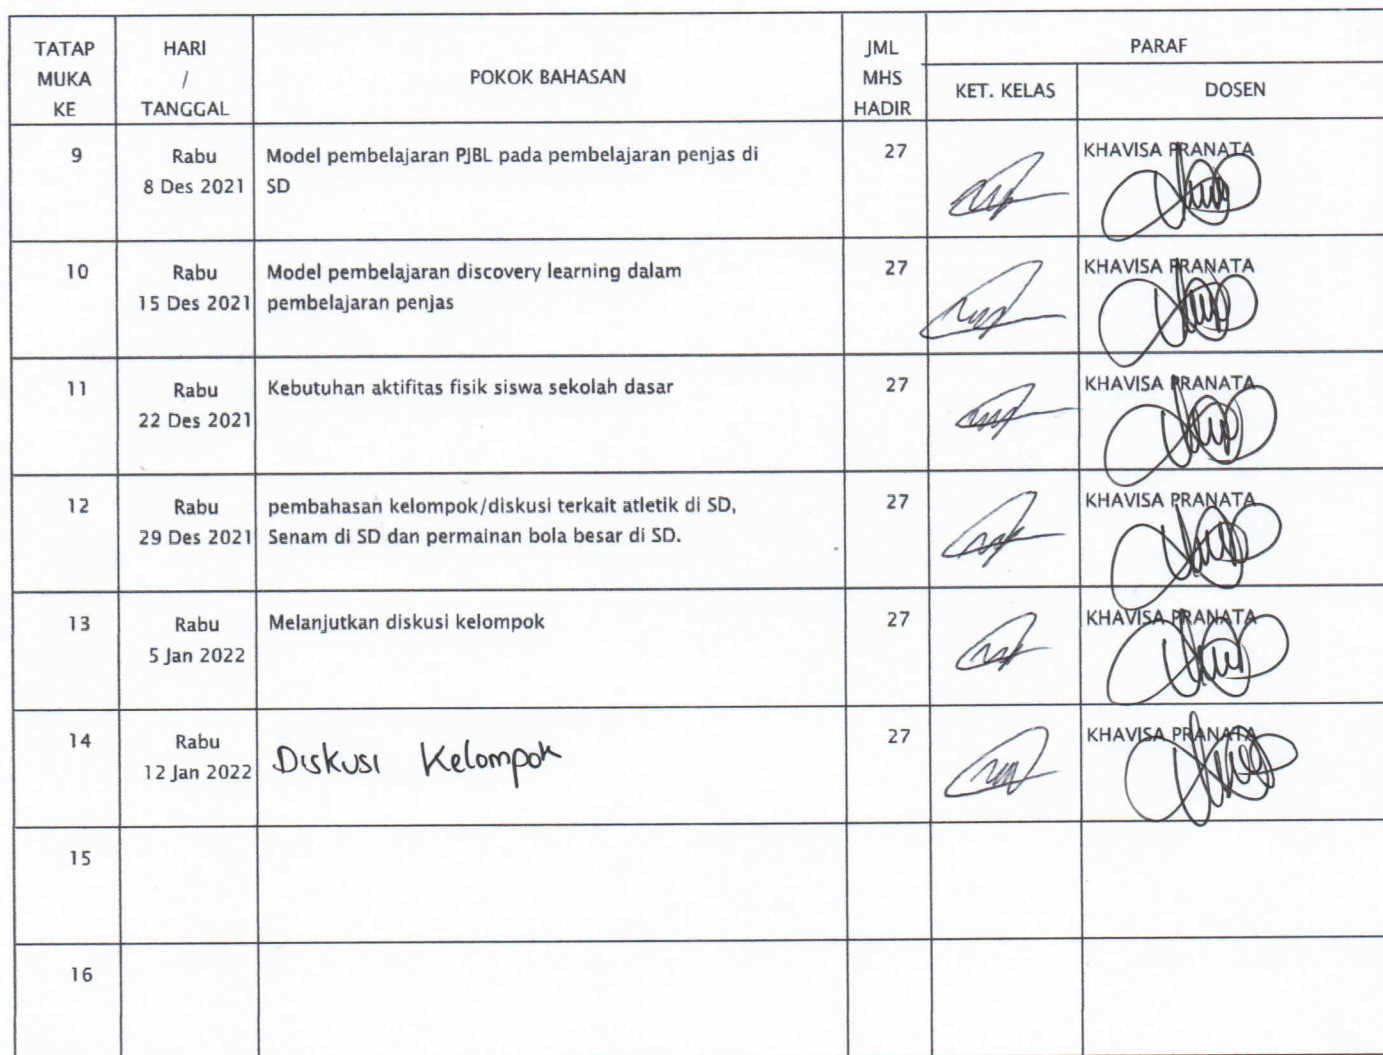 TATAP MUKA KE
HARI / TANGGAL
POKOK BAHASAN
JML MHS HADIR
PARAF
KET. KELAS
DOSEN
9
Rabu
8 Des 2021
Model pembelajaran PJBL pada pembelajaran penjas di
SD
27
KHAVISA PRANATA
10
Rabu
15 Des 2021
Model pembelajaran discovery learning dalam
pembelajaran penjas
27
KHAVISA PRANATA
11
Rabu
22 Des 2021
Kebutuhan aktifitas fisik siswa sekolah dasar
27
KHAVISA PRANATA
12
Rabu
29 Des 2021
pembahasan kelompok/diskusi terkait atletik di SD,
Senam di SD dan permainan bola besar di SD.
27
KHAVISA PRANATA
13
Rabu
5 Jan 2022
Melanjutkan diskusi kelompok
27
KHAVISA PRANATA
14
Rabu
12 Jan 2022
Diskusi Kelompok
27
KHAVISA PRANATA
15
16